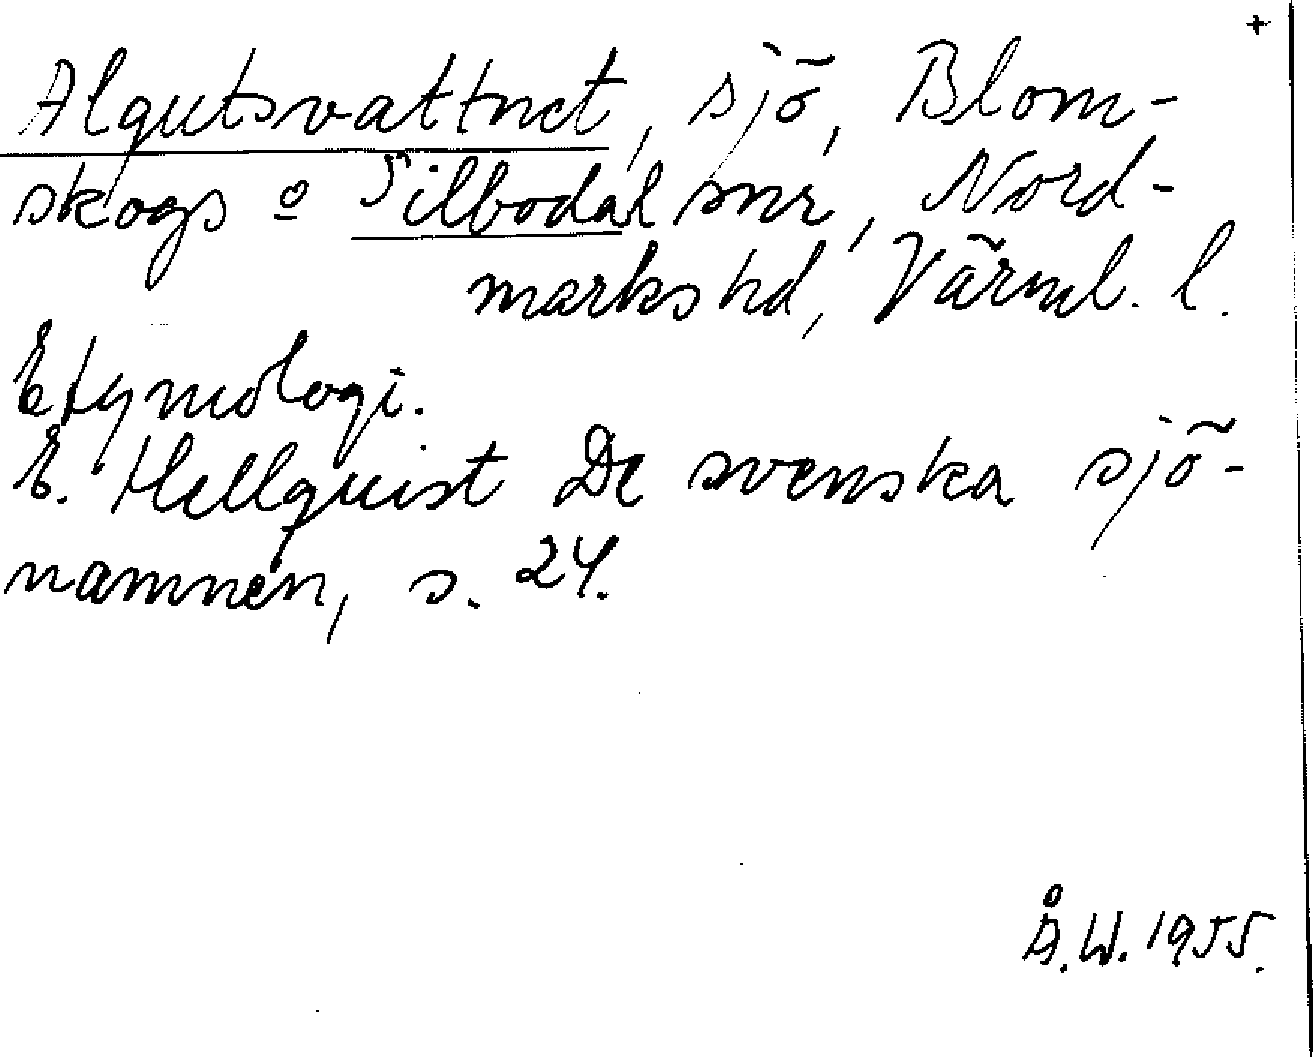 +
Algutsvattnet, sjö, Blom-
skogs o Silbodal snr, Nord-
markshd, Värml. l.
Etymologi.
E. Hellquist De svenska sjö-
namnen, s. 24.
Å.W. 1955.